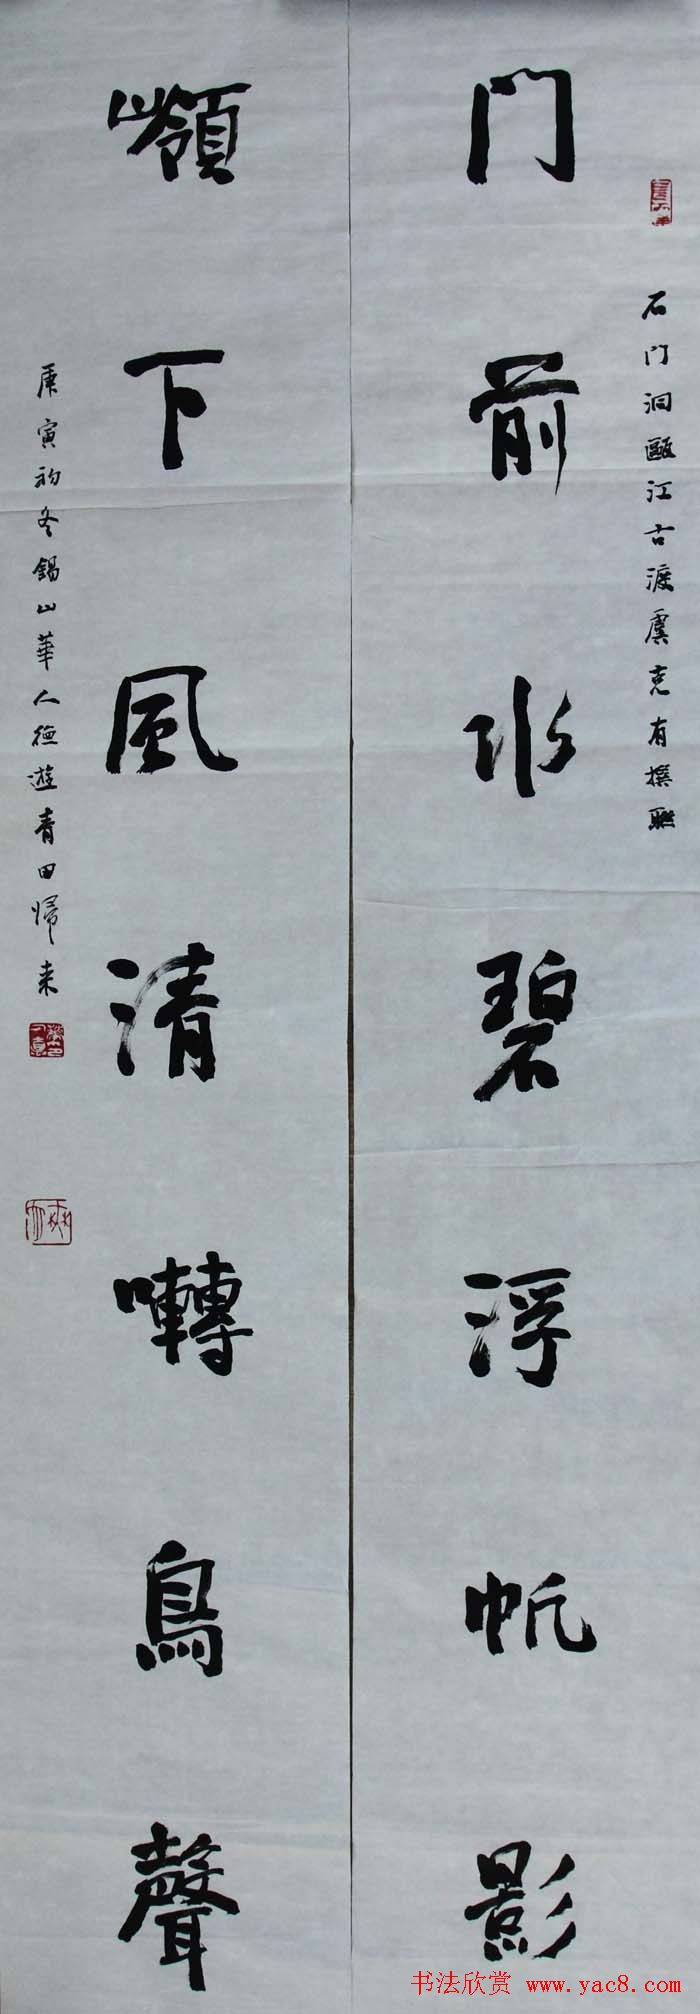 石门洞甌江古渡虞克有撰聯
门前水碧浮帆影
嶺下風清囀鳥聲
庚寅初冬錫山華人德遊青田歸来
书法欣赏 www.yac8.com